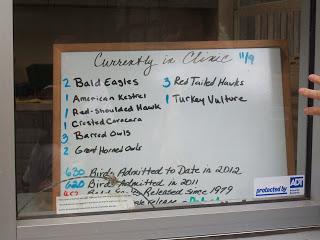 Currently in Clinic 11/9
2 Bald Eagles
1 American Kestrel
1 Red-Shoulded Hawk
1 Crested Caracara
3 Barred Owls
2 Great Horned Owls
3 Red Tailed Hawks
1 Turkey Vulture
630 Birds Admitted to Date in 2012
620 Birds Admitted in 2011
Released Since 1979
protected by ADT